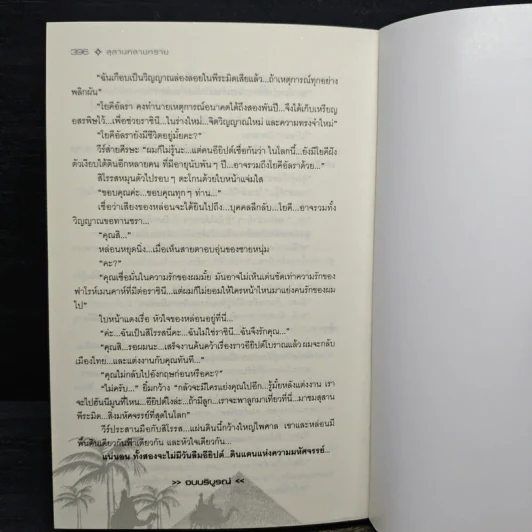 396 ❖ สุสานกลางทราย
“ฉันเกือบเป็นวิญญาณล่องลอยในพีระมิดเสียแล้ว...ถ้าเหตุการณ์ทุกอย่าง
พลิกผัน”
“โยคีอัลรา คงทำนายเหตุการณ์อนาคตได้ถึงสองพันปี...จึงได้เก็บเหรียญ
อสรพิษไว้...เพื่อช่วยราชินี...ในร่างใหม่...จิตวิญญาณใหม่ และความทรงจำใหม่”
“โยคีอัลรายังมีชีวิตอยู่มั้ยคะ?”
วีร์ส่ายศีรษะ “ผมก็ไม่รู้นะ...แต่คนอียิปต์เชื่อกันว่า ในโลกนี้...ยังมีโยคีฝัง
ตัวเงียบใต้ดินอีกหลายคน ที่มีอายุนับพันๆ ปี...อาจรวมถึงโยคีอัลราด้วย...”
สิโรรสหมุนตัวไปรอบๆ ตะโกนด้วยใบหน้าแจ่มใส
“ขอบคุณค่ะ...ขอบคุณทุกๆ ท่าน...”
เชื่อว่าเสียงของหล่อนจะได้ยินไปถึง...บุคคลลึกลับ...โยคี...อาจรวมทั้ง
วิญญาณขอทานชรา...
“คุณสิ...”
หล่อนหยุดนิ่ง...เมื่อเห็นสายตาอบอุ่นของชายหนุ่ม
“คะ?”
“คุณเชื่อมั่นในความรักของผมมั้ย มันอาจไม่เห็นเด่นชัดเท่าความรักของ
ฟาโรห์เมนคาห์ที่มีต่อราชินี...แต่ผมก็ไม่ยอมให้ใครหน้าไหนมาแย่งคนรักของผม
ไป”
ใบหน้าแดงเรื่อ หัวใจของหล่อนอยู่ที่นี่...
“ค่ะ...ฉันเป็นสิโรรสนี่คะ...ฉันไม่ใช่ราชินี...ฉันจึงรักคุณ...”
“คุณสิ...รอผมนะ...เสร็จงานค้นคว้าเรื่องราวอียิปต์โบราณแล้ว ผมจะกลับ
เมืองไทย...และแต่งงานกับคุณทันที...”
“คุณไม่กลับไปอังกฤษก่อนหรือคะ?”
“ไม่ครับ...” ยิ้มกว้าง “กลัวจะมีใครแย่งคุณไปอีก...รู้มั้ยหลังแต่งงาน เรา
จะไปฮันนีมูนที่ไหน...อียิปต์ไงล่ะ...ถ้ามีลูก...เราจะพาลูกมาเที่ยวที่นี่...มาชมสุสาน
พีระมิด...สิ่งมหัศจรรย์ที่สุดในโลก”
วีร์ประสานมือกับสิโรรส...แผ่นดินนี้กว้างใหญ่ไพศาล เขาและหล่อนมี
พื้นดินเดียวกันฟ้าเดียวกัน และหัวใจเดียวกัน...
แน่นอน ทั้งสองจะไม่มีวันลืมอียิปต์...ดินแดนแห่งความมหัศจรรย์...
>> จบบริบูรณ์ <<